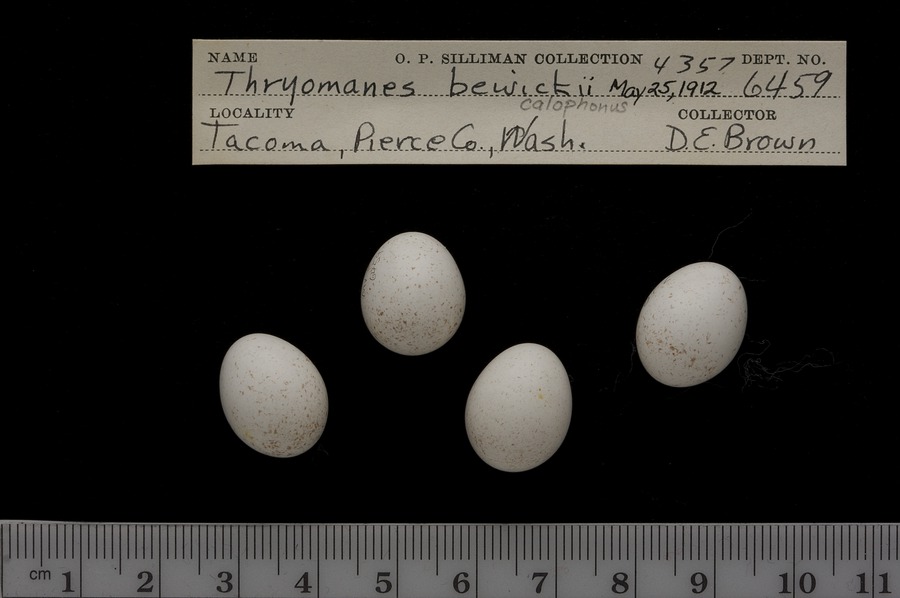 NAME O. P. SILLIMAN COLLECTION 4357 DEPT. NO.
Thryomanes bewickii May 25, 1912 6459
calophonus
LOCALITY COLLECTOR
Tacoma, Pierce Co., Wash. D.E. Brown
cm 1 2 3 4 5 6 7 8 9 10 11